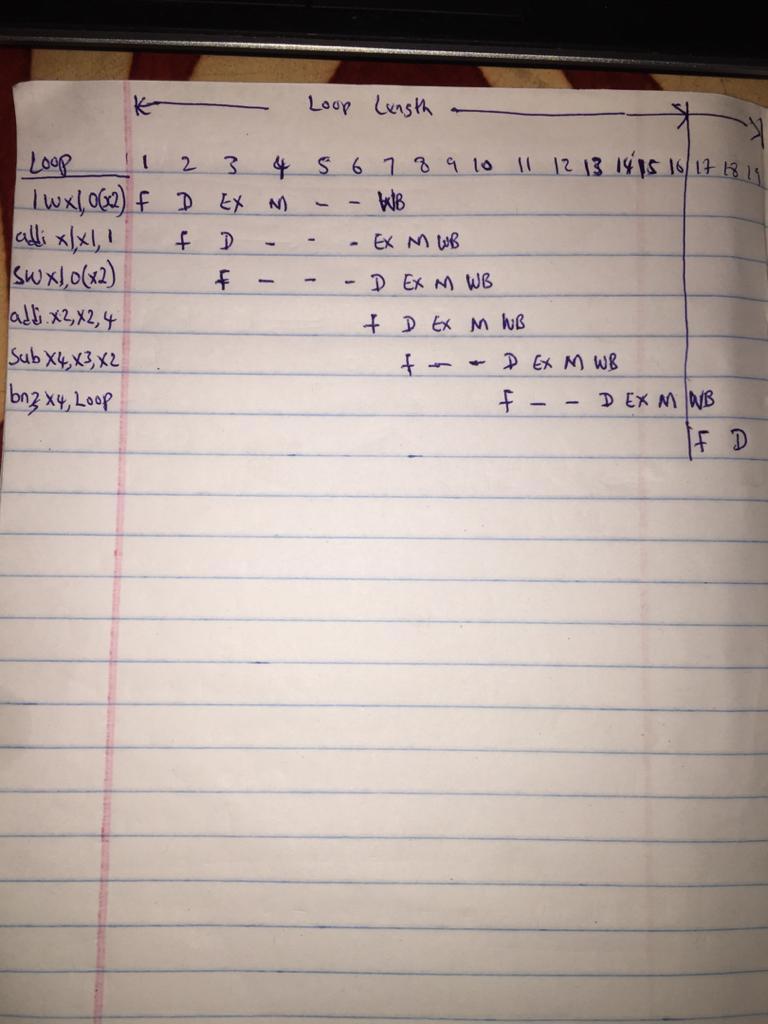 Loop Length
Loop 1 2 3 4 5 6 7 8 9 10 11 12 13 14 15 16 17 18 19
lw x1,0(x2) F D EX M - - WB
addi x1,x1,1 F D - - - EX M WB
SW x1,0(x2) F - - - D EX M WB
addi x2,x2,4 F D EX M WB
Sub x4,x3,x2 F - - D EX M WB
bnz x4, Loop F - - D EX M WB
F D